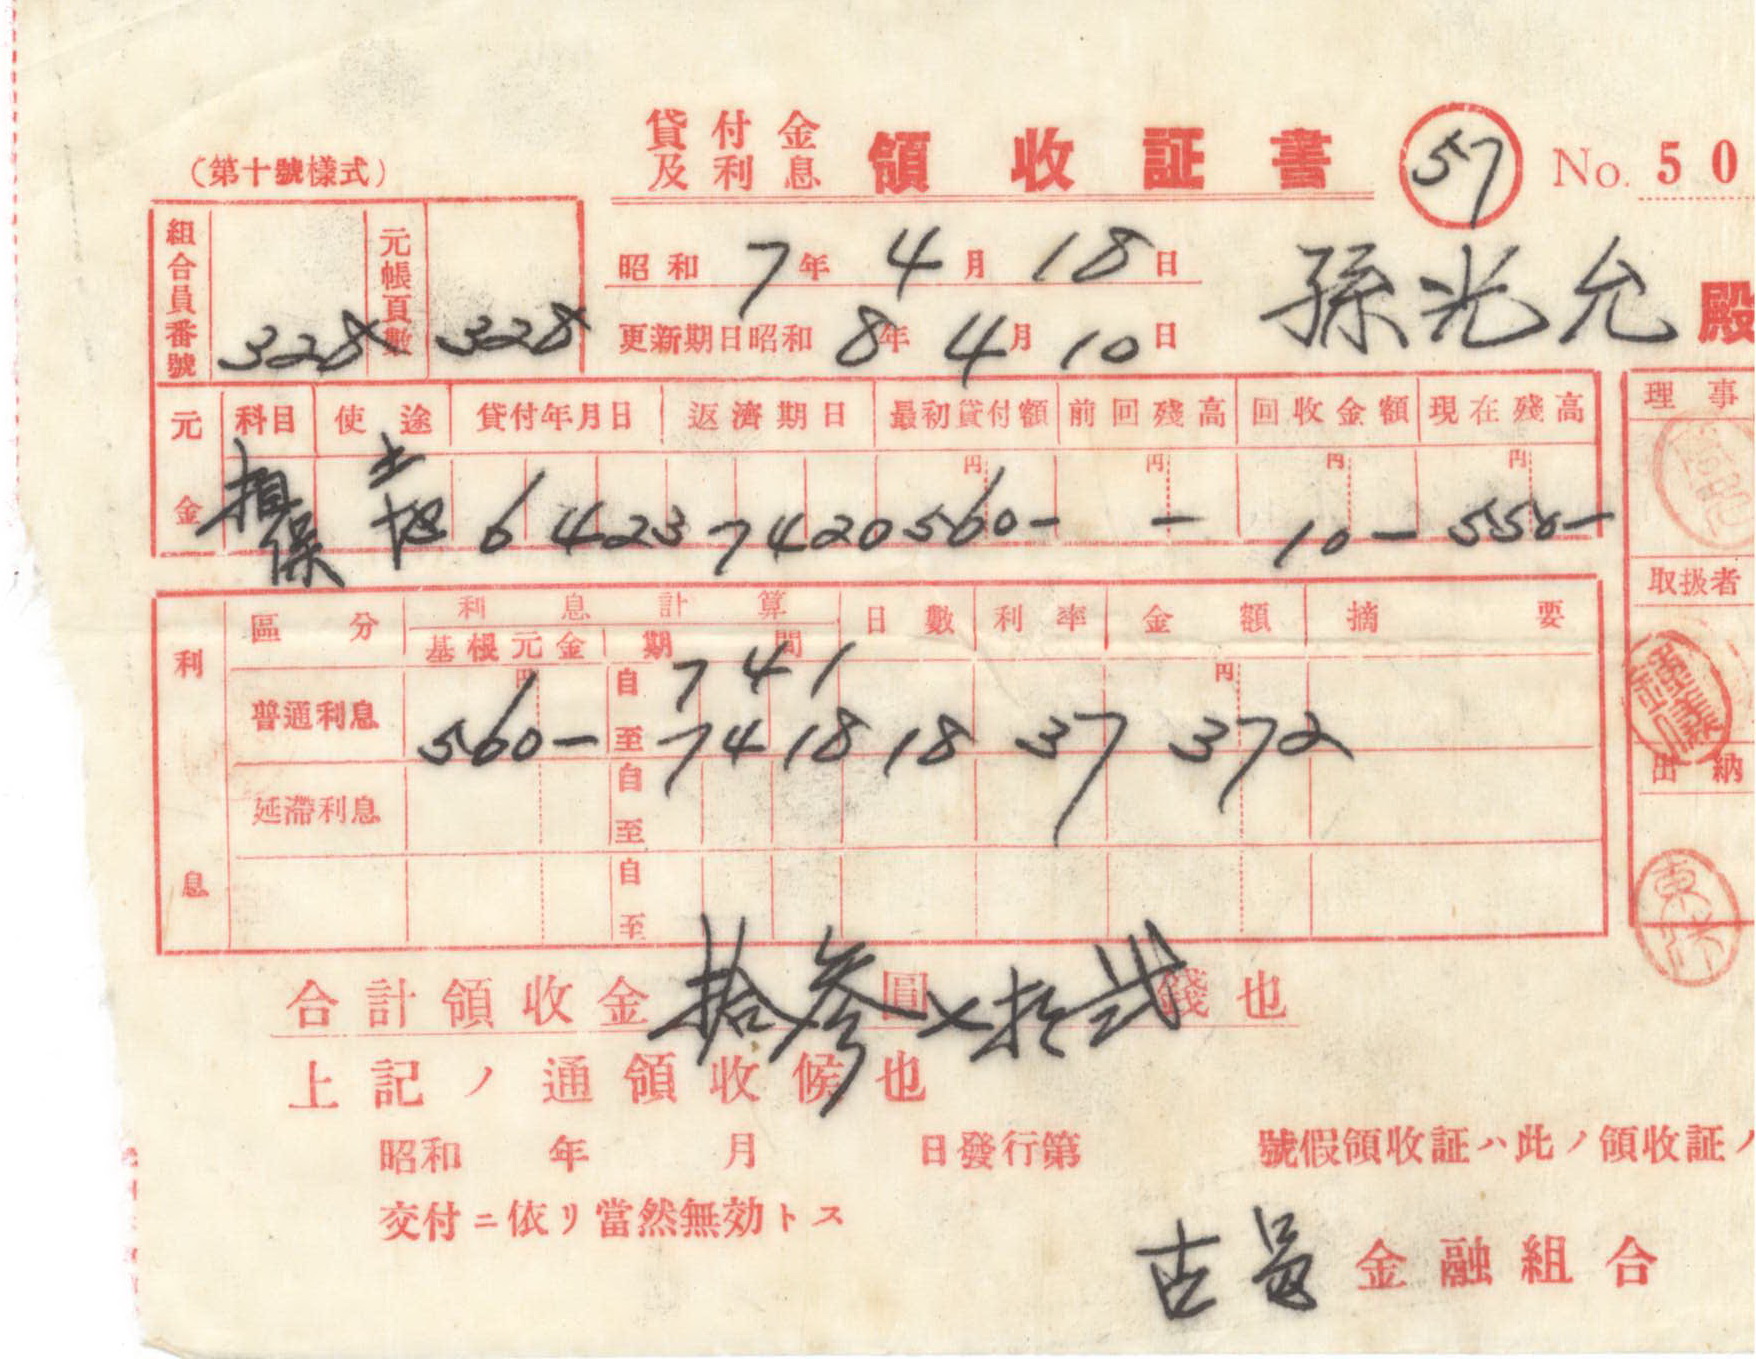 (第十號樣式)
貸付金
及利息
領收証書
57
No. 50
組合員番號 328 元帳頁數 328
昭和 7年 4月 18日
更新期日昭和 8年 4月 10日
孫光允 殿
元金 科目 使途 貸付年月日 返濟期日 最初貸付額 前回殘高 回收金額 現在殘高
円 円 円 円
担保 土地 6 4 23 7 4 20 560- - 10- 550-
利息 區分 利息計算 日數 利率 金額 摘要
基根元金 期間
普通利息 円 自 7 4 1 円
560- 至 7 4 18 18 37 372
延滯利息 自
至
自
至
理事
取扱者
出納
合計領收金 拾參圓七拾弐錢也
上記ノ通領收候也
昭和 年 月 日發行第 號假領收証ハ此ノ領收証ノ
交付ニ依リ當然無効トス
金融組合